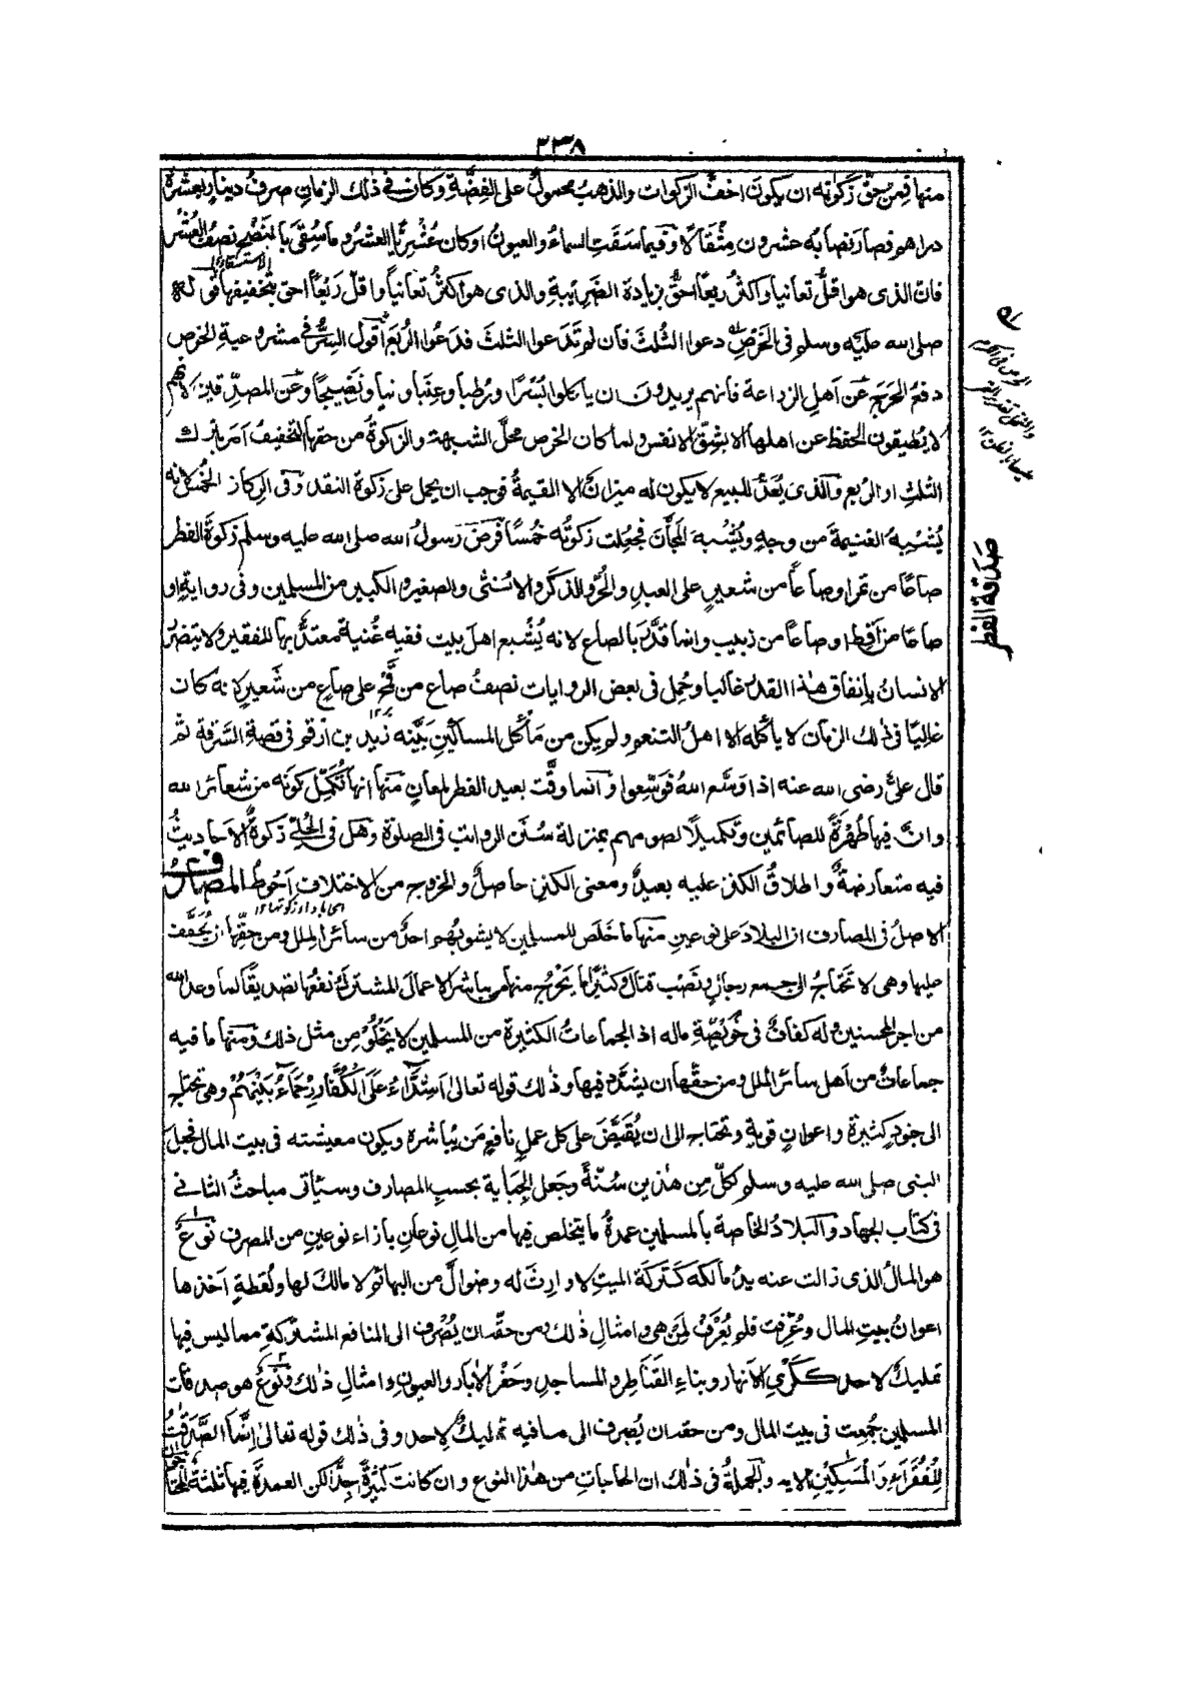 ٢٣٨
منها فمن حق زكوته ان يكون اخف الزكوات والذهب محمول على الفضة وكان في ذلك الزمان صرف دينار بعشرة
دراهم فصار نصابه عشرون مثقالا وفيما سقت السماء والعيون او كان عثريا العشر وما سقى بالنضح نصف العشر
فان الذى هو اقل تعانيا واكثر ريعا احق بزيادة الضريبة والذى هو اكثر تعانيا واقل ريعا احق بتخفيفها قوله
صلى الله عليه وسلم فى الخرص دعوا الثلث فان لم تدعوا الثلث فدعوا الربع اقول السر في مشروعية الخرص
دفع الحرج عن اهل الزراعة فانهم يريدون ان ياكلوا بسرا ورطبا وعنبا ونيا ونضيجا وعن المصدقين لانهم
لا يطيقون الحفظ عن اهلها الا بشق الانفس ولما كان الخرص محل الشبهة والزكوة من حقها التخفيف امر بترك
الثلث او الربع والذى يعد للبيع لا يكون له ميزان الا القيمة فوجب ان يحمل على زكوة النقد وفى الركاز الخمس لانه
يشبه الغنيمة من وجه ويشبه المجان فجعلت زكوته خمسا فرض رسول الله صلى الله عليه وسلم زكوة الفطر
صاعا من تمر او صاعا من شعير على العبد والحر والذكر والانثى والصغير والكبير من المسلمين وفى رواية او
صاعا من اقط او صاعا من زبيب وانما قدر بالصاع لانه يشبع اهل بيت ففيه غنية معتد بها للفقير ولا يتضرر
الانسان بانفاق هذا القدر غالبا وحمل فى بعض الروايات نصف صاع من قمح على صاع من شعير لانه كان
غالبا فى ذلك الزمان لا ياكله الا اهل التنعم ولم يكن من ماكل المساكين بينه زيد بن ارقم فى قصة السرقة ثم
قال على رضى الله عنه اذا وسع الله فوسعوا وانما وقت بعيد الفطر لمعان منها انها تكمل كونه من شعائر الله
وان فيها طهرة للصائمين وتكميلا لصومهم بمنزلة سنن الرواتب فى الصلوة وهل فى الحلى زكوة الاحاديث
فيه متعارضة واطلاق الكنز عليه بعيد ومعنى الكنز حاصل والخروج من الاختلاف احوط المصارف
الاصل فى المصارف ان البلاد على نوعين منها ما خلص للمسلمين لا يشوبهم احد من سائر الملل ومن حقها ان يخفف
عليها وهى لا تحتاج الى جمع رجال ونصب قتال وكثيرا ما يخرج منها من يباشر الاعمال المشترك نفعها تصديقا لما وعد الله
من اجر المحسنين وله كفاف فى خويصة ماله اذ الجماعات الكثيرة من المسلمين لا يخلو من مثل ذلك ومنها ما فيه
جماعات من اهل سائر الملل ومن حقها ان يشدد فيها وذلك قوله تعالى اشداء على الكفار رحماء بينهم وهى تحتاج
الى جنود كثيرة واعوان قوية وتحتاج الى ان يقيض على كل عمل نافع من يباشره ويكون معيشته فى بيت المال فجعل
النبى صلى الله عليه وسلم لكل من هذين سنة وجعل الجباية بحسب المصارف وستاتى مباحث الثانى
فى كتاب الجهاد والبلاد الخاصة بالمسلمين عمدة ما يتخلص فيها من المال نوعان بازاء نوعين من المصرف نوع
هو المال الذى زالت عنه يد مالكه كتركة الميت لا وارث له وضوال من البهائم لا مالك لها ولقطة اخذها
اعوان بيت المال وعرفت فلم يعرف لمن هى وامثال ذلك ومن حقه ان يصرف الى المنافع المشتركة مما ليس فيها
تمليك لاحد ككرى الانهار وبناء القناطر والمساجد وحفر الابار والعيون وامثال ذلك ونوع هو صدقات
المسلمين جمعت فى بيت المال ومن حقه ان يصرف الى ما فيه تمليك لاحد وفى ذلك قوله تعالى انما الصدقات
للفقراء والمساكين الاية والجملة فى ذلك ان الحاجات من هذا النوع وان كانت كثيرة جدا لكن العمدة فيها ثلثة
صدقة الفطر